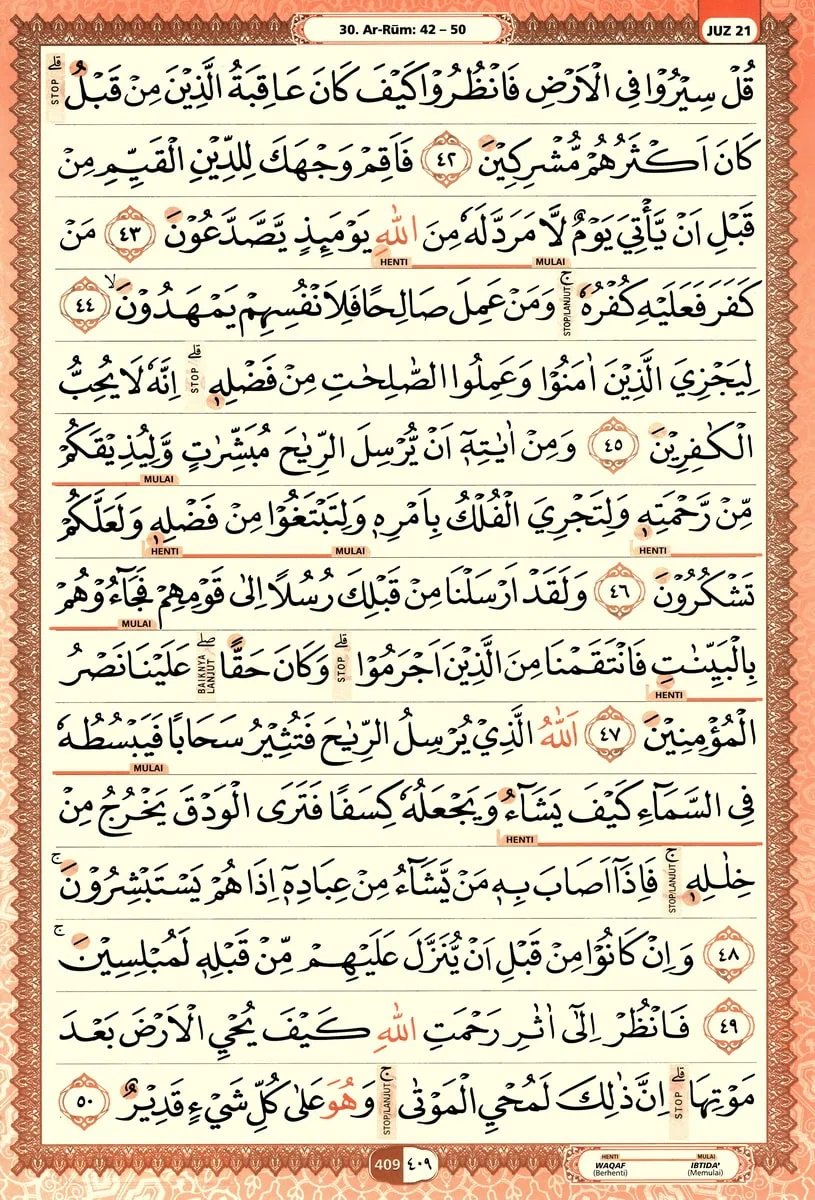 30. Ar-Rūm: 42 – 50
JUZ 21
قُلْ سِيْرُوْا فِى الْاَرْضِ فَانْظُرُوْا كَيْفَ كَانَ عَاقِبَةُ الَّذِيْنَ مِنْ قَبْلُۗ STOP
كَانَ اَكْثَرُهُمْ مُّشْرِكِيْنَ ٤٢ فَاَقِمْ وَجْهَكَ لِلدِّيْنِ الْقَيِّمِ مِنْ
قَبْلِ اَنْ يَّأْتِيَ يَوْمٌ لَّا مَرَدَّ لَهٗ مِنَ اللّٰهِ يَوْمَىِٕذٍ يَّصَّدَّعُوْنَ ٤٣ مَنْ
MULAI HENTI
كَفَرَ فَعَلَيْهِ كُفْرُهٗۚ STOP/LANJUT وَمَنْ عَمِلَ صَالِحًا فَلِاَنْفُسِهِمْ يَمْهَدُوْنَۙ ٤٤
لِيَجْزِيَ الَّذِيْنَ اٰمَنُوْا وَعَمِلُوا الصّٰلِحٰتِ مِنْ فَضْلِهٖۗ STOP اِنَّهٗ لَا يُحِبُّ
الْكٰفِرِيْنَ ٤٥ وَمِنْ اٰيٰتِهٖٓ اَنْ يُّرْسِلَ الرِّيٰحَ مُبَشِّرٰتٍ وَّلِيُذِيْقَكُمْ
MULAI
مِّنْ رَّحْمَتِهٖ وَلِتَجْرِيَ الْفُلْكُ بِاَمْرِهٖ وَلِتَبْتَغُوْا مِنْ فَضْلِهٖ وَلَعَلَّكُمْ
HENTI MULAI HENTI
تَشْكُرُوْنَ ٤٦ وَلَقَدْ اَرْسَلْنَا مِنْ قَبْلِكَ رُسُلًا اِلٰى قَوْمِهِمْ فَجَاۤءُوْهُمْ
MULAI
بِالْبَيِّنٰتِ فَانْتَقَمْنَا مِنَ الَّذِيْنَ اَجْرَمُوْاۗ STOP وَكَانَ حَقًّاۖ BAIKNYA LANJUT عَلَيْنَا نَصْرُ
HENTI
الْمُؤْمِنِيْنَ ٤٧ اَللّٰهُ الَّذِيْ يُرْسِلُ الرِّيٰحَ فَتُثِيْرُ سَحَابًا فَيَبْسُطُهٗ
MULAI
فِى السَّمَاۤءِ كَيْفَ يَشَاۤءُ وَيَجْعَلُهٗ كِسَفًا فَتَرَى الْوَدْقَ يَخْرُجُ مِنْ
HENTI
خِلٰلِهٖۚ STOP/LANJUT فَاِذَآ اَصَابَ بِهٖ مَنْ يَّشَاۤءُ مِنْ عِبَادِهٖٓ اِذَا هُمْ يَسْتَبْشِرُوْنَۚ
٤٨ وَاِنْ كَانُوْا مِنْ قَبْلِ اَنْ يُّنَزَّلَ عَلَيْهِمْ مِّنْ قَبْلِهٖ لَمُبْلِسِيْنَۚ
٤٩ فَانْظُرْ اِلٰٓى اٰثٰرِ رَحْمَتِ اللّٰهِ كَيْفَ يُحْيِ الْاَرْضَ بَعْدَ
مَوْتِهَاۗ STOP اِنَّ ذٰلِكَ لَمُحْيِ الْمَوْتٰىۚ STOP/LANJUT وَهُوَ عَلٰى كُلِّ شَيْءٍ قَدِيْرٌ ٥٠
409 ٤٠٩
HENTI MULAI
WAQAF IBTIDA'
(Berhenti) (Memulai)